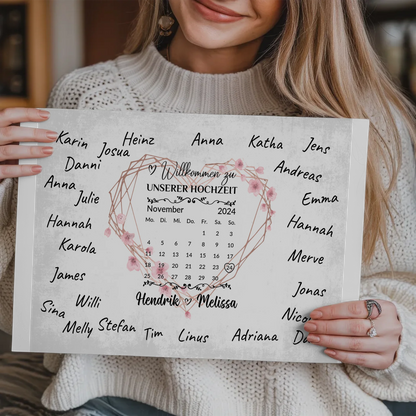 Karin Josua Heinz Anna Katha Jens
Danni Andreas
Anna Julie Emma
Hannah Hannah
Karola Merve
James Jonas
Sina Willi
Melly Stefan Tim Linus Adriana
Willkommen zu
UNSERER HOCHZEIT
November 2024
Mo. Di. Mi. Do. Fr. Sa. So.
1 2 3
4 5 6 7 8 9 10
11 12 13 14 15 16 17
18 19 20 21 22 23 24
25 26 27 28 29 30
Hendrik Melissa